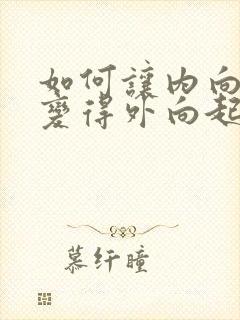 如何讓内向
變得外向起
慕纤瞳